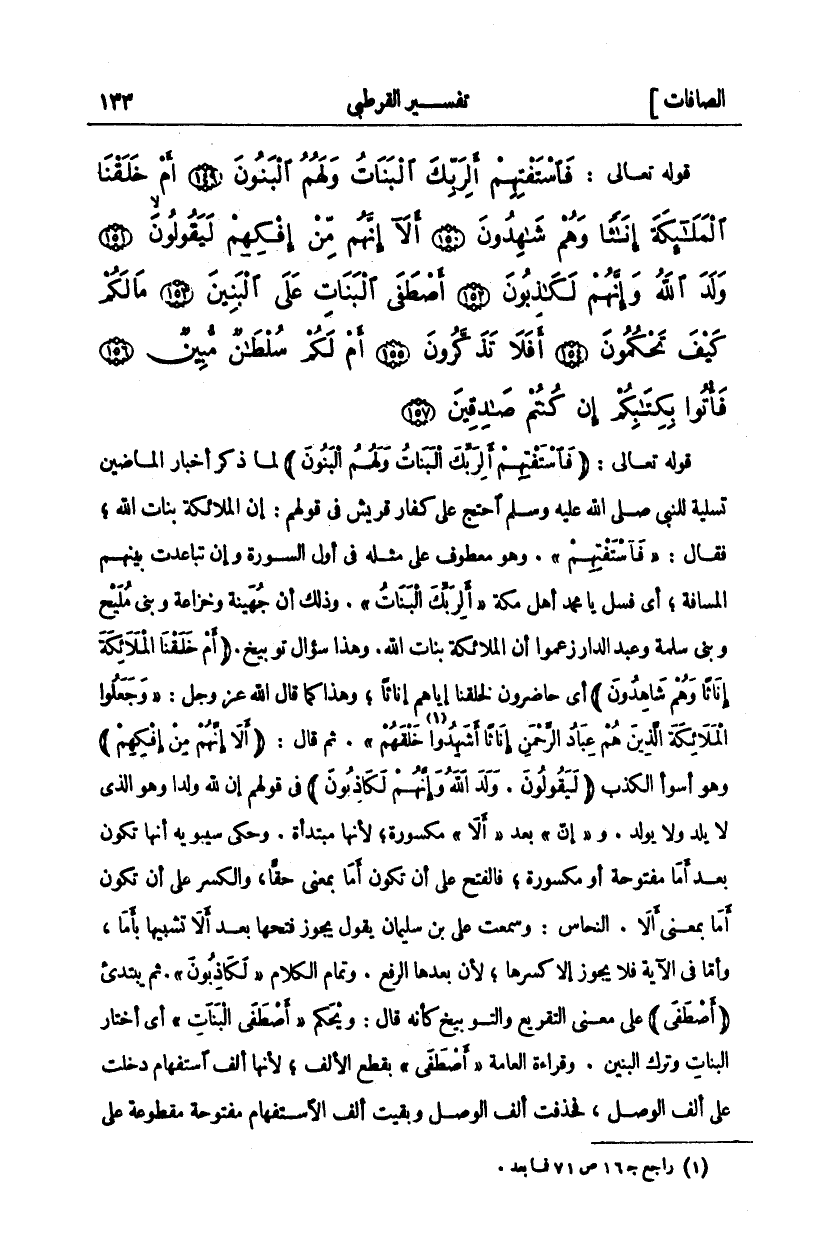 الصافات ] تفسير القرطبى ١٣٣
قوله تعالى : فَٱسْتَفْتِهِمْ أَلِرَبِّكَ ٱلْبَنَاتُ وَلَهُمُ ٱلْبَنُونَ ۝١٤٩ أَمْ خَلَقْنَا
ٱلْمَلَٰٓئِكَةَ إِنَٰثًا وَهُمْ شَٰهِدُونَ ۝١٥٠ أَلَآ إِنَّهُم مِّنْ إِفْكِهِمْ لَيَقُولُونَ ۝١٥١
وَلَدَ ٱللَّهُ وَإِنَّهُمْ لَكَٰذِبُونَ ۝١٥٢ أَصْطَفَى ٱلْبَنَاتِ عَلَى ٱلْبَنِينَ ۝١٥٣ مَالَكُمْ
كَيْفَ تَحْكُمُونَ ۝١٥٤ أَفَلَا تَذَكَّرُونَ ۝١٥٥ أَمْ لَكُمْ سُلْطَٰنٌ مُّبِينٌ ۝١٥٦
فَأْتُوا بِكِتَٰبِكُمْ إِن كُنتُمْ صَٰدِقِينَ ۝١٥٧
قوله تعالى : ﴿ فَٱسْتَفْتِهِمْ أَلِرَبِّكَ الْبَنَاتُ وَلَهُمُ الْبَنُونَ ﴾ لما ذكر أخبار الماضين
تسلية للنبي صلى الله عليه وسلم ٱحتج على كفار قريش فى قولهم : إن الملائكة بنات الله ؛
فقال : « فَٱسْتَفْتِهِمْ » . وهو معطوف على مثله فى أول السورة وإن تباعدت بينهم
المسافة ؛ أى فسل يا محمد أهل مكة « أَلِرَبِّكَ الْبَنَاتُ » . وذلك أن جُهَينة وخزاعة وبنى مُلَيْح
وبنى سلمة وعبد الدار زعموا أن الملائكة بنات الله. وهذا سؤال توبيخ. ﴿ أَمْ خَلَقْنَا الْمَلَائِكَةَ
إِنَاثًا وَهُمْ شَاهِدُونَ ﴾ أى حاضرون لخلقنا إياهم إناثًا ؛ وهذا كما قال الله عز وجل : « وَجَعَلُوا
الْمَلَائِكَةَ الَّذِينَ هُمْ عِبَادُ الرَّحْمَنِ إِنَاثًا أَشَهِدُوا خَلْقَهُمْ (١) » . ثم قال : ﴿ أَلَا إِنَّهُمْ مِنْ إِفْكِهِمْ ﴾
وهو أسوأ الكذب ﴿ لَيَقُولُونَ . وَلَدَ اللهُ وَإِنَّهُمْ لَكَاذِبُونَ ﴾ فى قولهم إن لله ولدا وهو الذى
لا يلد ولا يولد . و « إنّ » بعد « ألَا » مكسورة؛ لأنها مبتدأة . وحكى سيبويه أنها تكون
بعد أَمَا مفتوحة أو مكسورة ؛ فالفتح على أن تكون أَمَا بمعنى حقًّا، والكسر على أن تكون
أَمَا بمعنى أَلَا . النحاس : وسمعت على بن سليمان يقول يجوز فتحها بعد أَلَا تشبيها بأَمَا ،
وأمّا فى الآية فلا يجوز إلا كسرها ؛ لأن بعدها الرفع . وتمام الكلام « لَكَاذِبُونَ ». ثم يبتدئ
﴿ أَصْطَفَى ﴾ على معنى التقريع والتوبيخ كأنه قال : ويْحَكم « أَصْطَفَى الْبَنَاتِ » أى ٱختار
البنات وترك البنين . وقراءة العامة « أَصْطَفَى » بقطع الألف ؛ لأنها ألف ٱستفهام دخلت
على ألف الوصل ، فحذفت ألف الوصل وبقيت ألف الاستفهام مفتوحة مقطوعة على
(١) راجع جـ ١٦ ص ٧١ فما بعد .